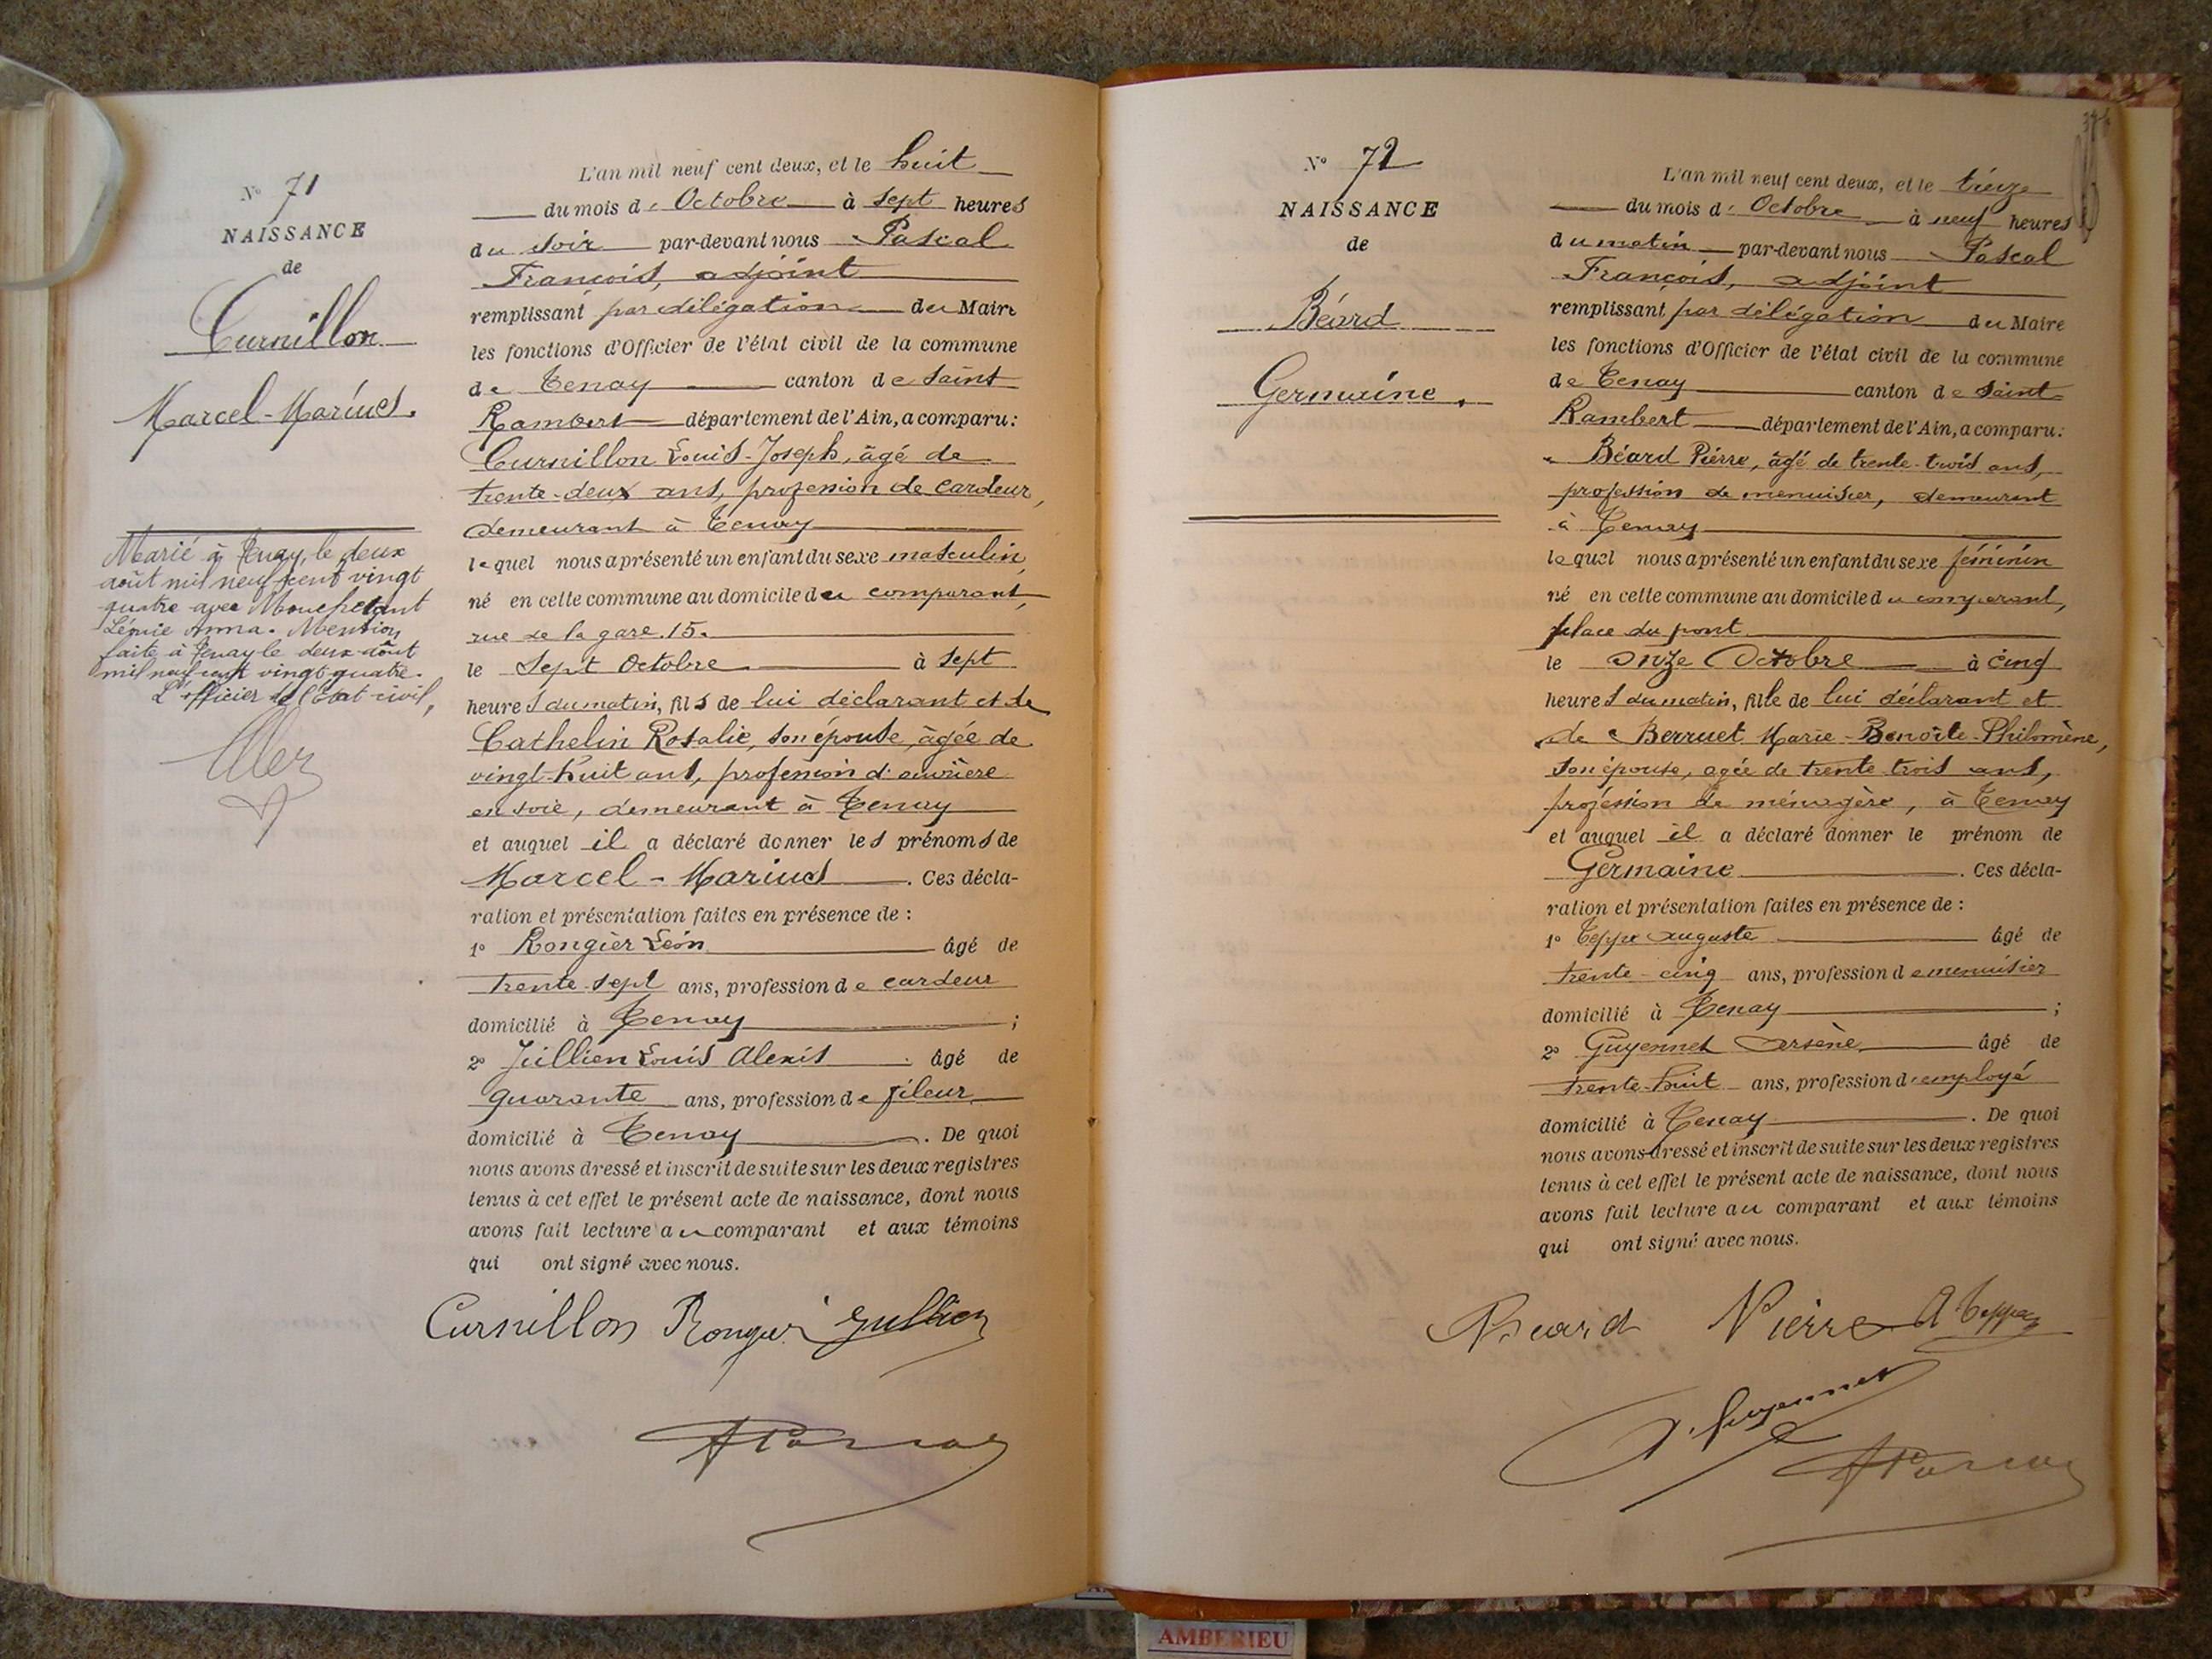 N° 71
NAISSANCE
de
Curnillon
Marcel-Marius.
Marié à Tenay, le deux
août mil neuf cent vingt
quatre avec
Anna. Mention
faite à Tenay le deux août
mil neuf cent vingt quatre.
L'officier de l'Etat civil,
L'an mil neuf cent deux, et le huit
du mois d'Octobre à sept heures
du soir par-devant nous Pascal
François, adjoint
remplissant par délégation du Maire
les fonctions d'Officier de l'état civil de la commune
de Tenay canton de Saint
Rambert département de l'Ain, a comparu :
Curnillon Louis-Joseph, âgé de
trente-deux ans, profession de cardeur,
demeurant à Tenay
lequel nous a présenté un enfant du sexe masculin,
né en cette commune au domicile du comparant,
rue de la gare. 15.
le Sept Octobre à sept
heures du matin, fils de lui déclarant et de
Cathelin Rosalie, son épouse, âgée de
vingt-huit ans, profession d'ouvrière
en soie, demeurant à Tenay
et auquel il a déclaré donner les prénoms de
Marcel-Marius. Ces décla-
ration et présentation faites en présence de :
1° Rongier Léon âgé de
trente-sept ans, profession de cardeur
domicilié à Tenay ;
2° Jullien Louis Alexis âgé de
quarante ans, profession de fileur
domicilié à Tenay. De quoi
nous avons dressé et inscrit de suite sur les deux registres
tenus à cet effet le présent acte de naissance, dont nous
avons fait lecture au comparant et aux témoins
qui ont signé avec nous.
Curnillon Rongier Jullien
N° 72
NAISSANCE
de
Béard
Germaine.
L'an mil neuf cent deux, et le treize
du mois d'Octobre à neuf heures
du matin par-devant nous Pascal
François, adjoint
remplissant par délégation du Maire
les fonctions d'Officier de l'état civil de la commune
de Tenay canton de Saint-
Rambert département de l'Ain, a comparu :
Béard Pierre, âgé de trente-trois ans,
profession de menuisier, demeurant
à Tenay
lequel nous a présenté un enfant du sexe féminin
né en cette commune au domicile du comparant,
place du pont
le onze Octobre à cinq
heures du matin, fille de lui déclarant et
de Berruet Marie-Benoîte-Philomène,
son épouse, agée de trente trois ans,
profession de ménagère, à Tenay
et auquel il a déclaré donner le prénom de
Germaine. Ces décla-
ration et présentation faites en présence de :
1° Teppe auguste âgé de
trente-cinq ans, profession de menuisier
domicilié à Tenay ;
2° Guyennet Arsène âgé de
trente-huit ans, profession d'employé
domicilié à Tenay. De quoi
nous avons dressé et inscrit de suite sur les deux registres
tenus à cet effet le présent acte de naissance, dont nous
avons fait lecture au comparant et aux témoins
qui ont signé avec nous.
Béard Pierre A Teppe
A. Guyennet
AMBERIEU